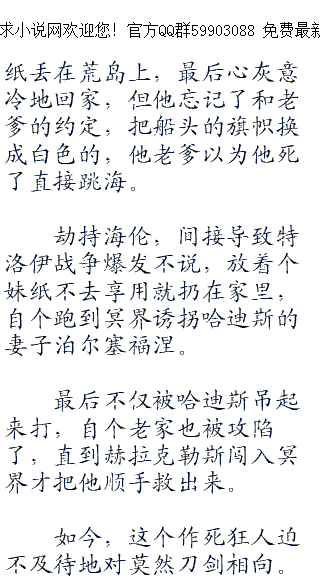 求小说网欢迎您! 官方QQ群59903088 免费最新
纸丢在荒岛上，最后心灰意
冷地回家，但他忘记了和老
爹的约定，把船头的旗帜换
成白色的，他老爹以为他死
了直接跳海。
劫持海伦，间接导致特
洛伊战争爆发不说，放着个
妹纸不去享用就扔在家里，
自个跑到冥界诱拐哈迪斯的
妻子泊尔塞福涅。
最后不仅被哈迪斯吊起
来打，自个老家也被攻陷
了，直到赫拉克勒斯闯入冥
界才把他顺手救出来。
如今，这个作死狂人迫
不及待地对莫然刀剑相向。